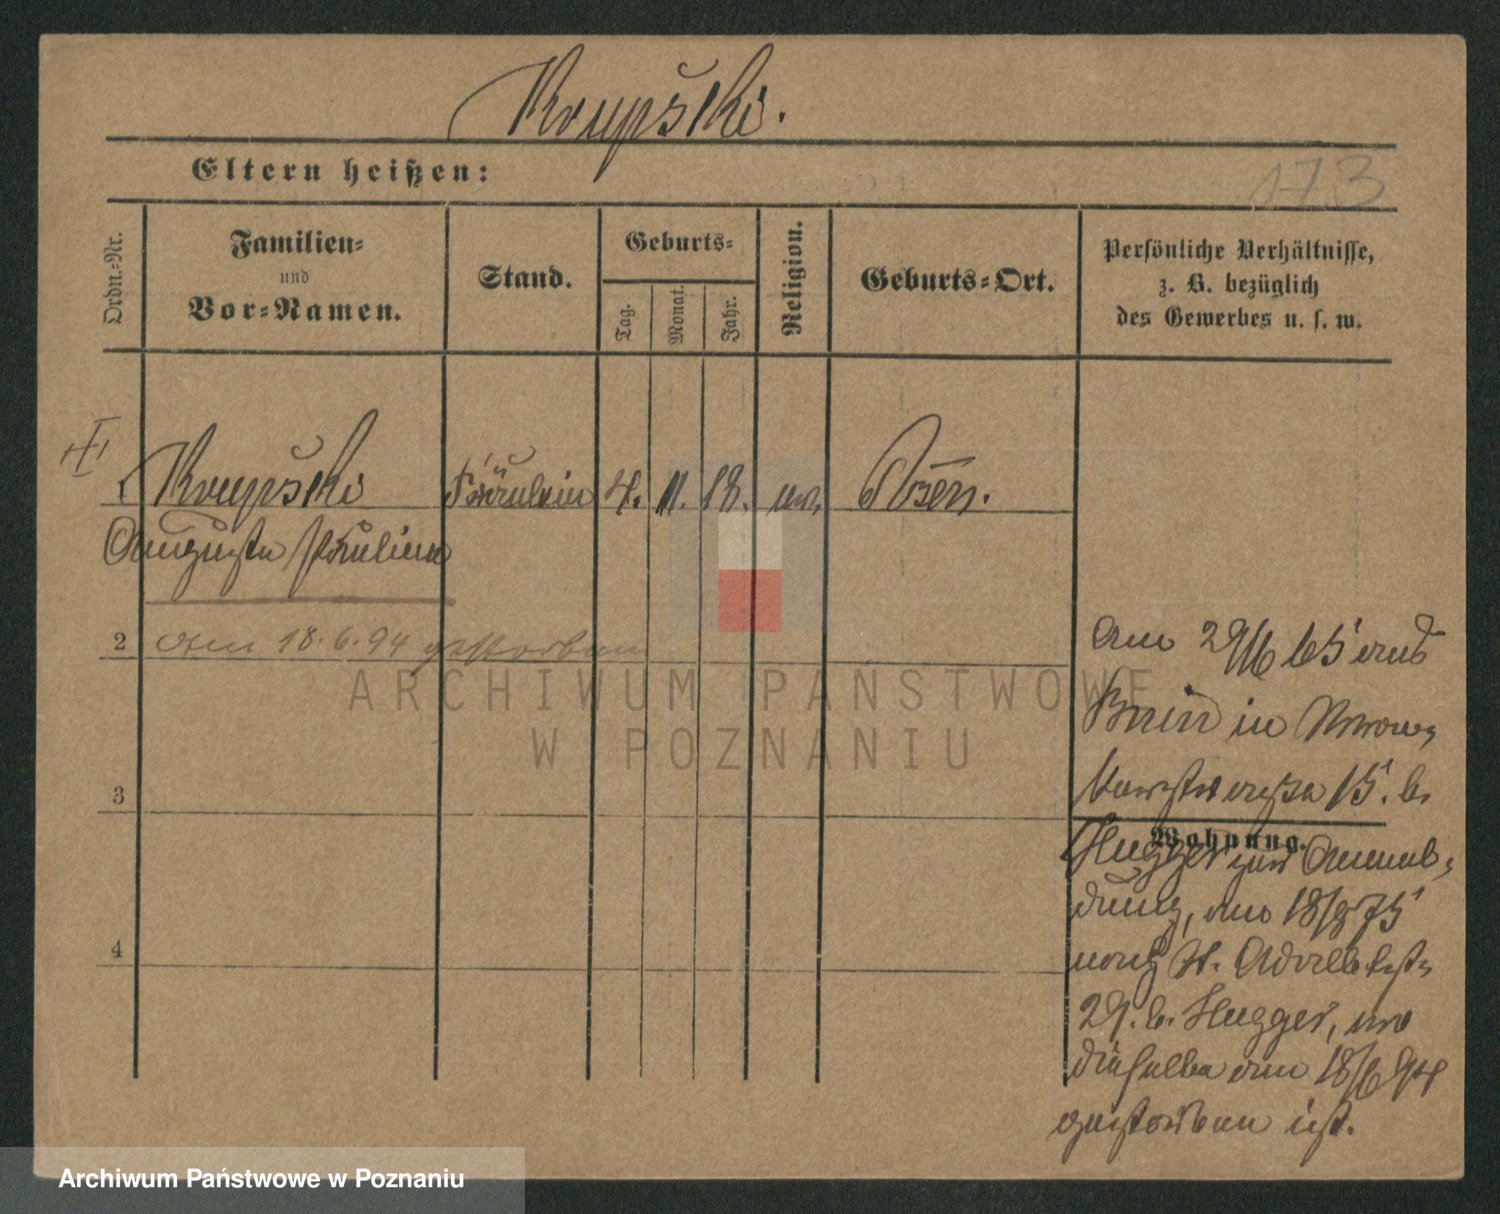 Krupski.
Eltern heißen:
173
Ordn.-Nr.
Familien-
und
Vor-Namen.
Stand.
Geburts-
Tag.
Monat.
Jahr.
Religion.
Geburts-Ort.
Persönliche Verhältnisse,
z. B. bezüglich
des Gewerbes u. s. w.
1 Krupski Fräulein 4. 11. 18. ev. Posen.
Auguste Pauline
2 Am 18.6.94 gestorben
3
4
Am 29/6 65 aus
in
15. b.
Wohnung.
Hugger zur Anmel-
dung, am 18/9 75
nach St. Adalbertstr
29. b. Hugger, wo
dieselbe am 18/6 94
gestorben ist.
ARCHIWUM PAŃSTWOWE
W POZNANIU
Archiwum Państwowe w Poznaniu